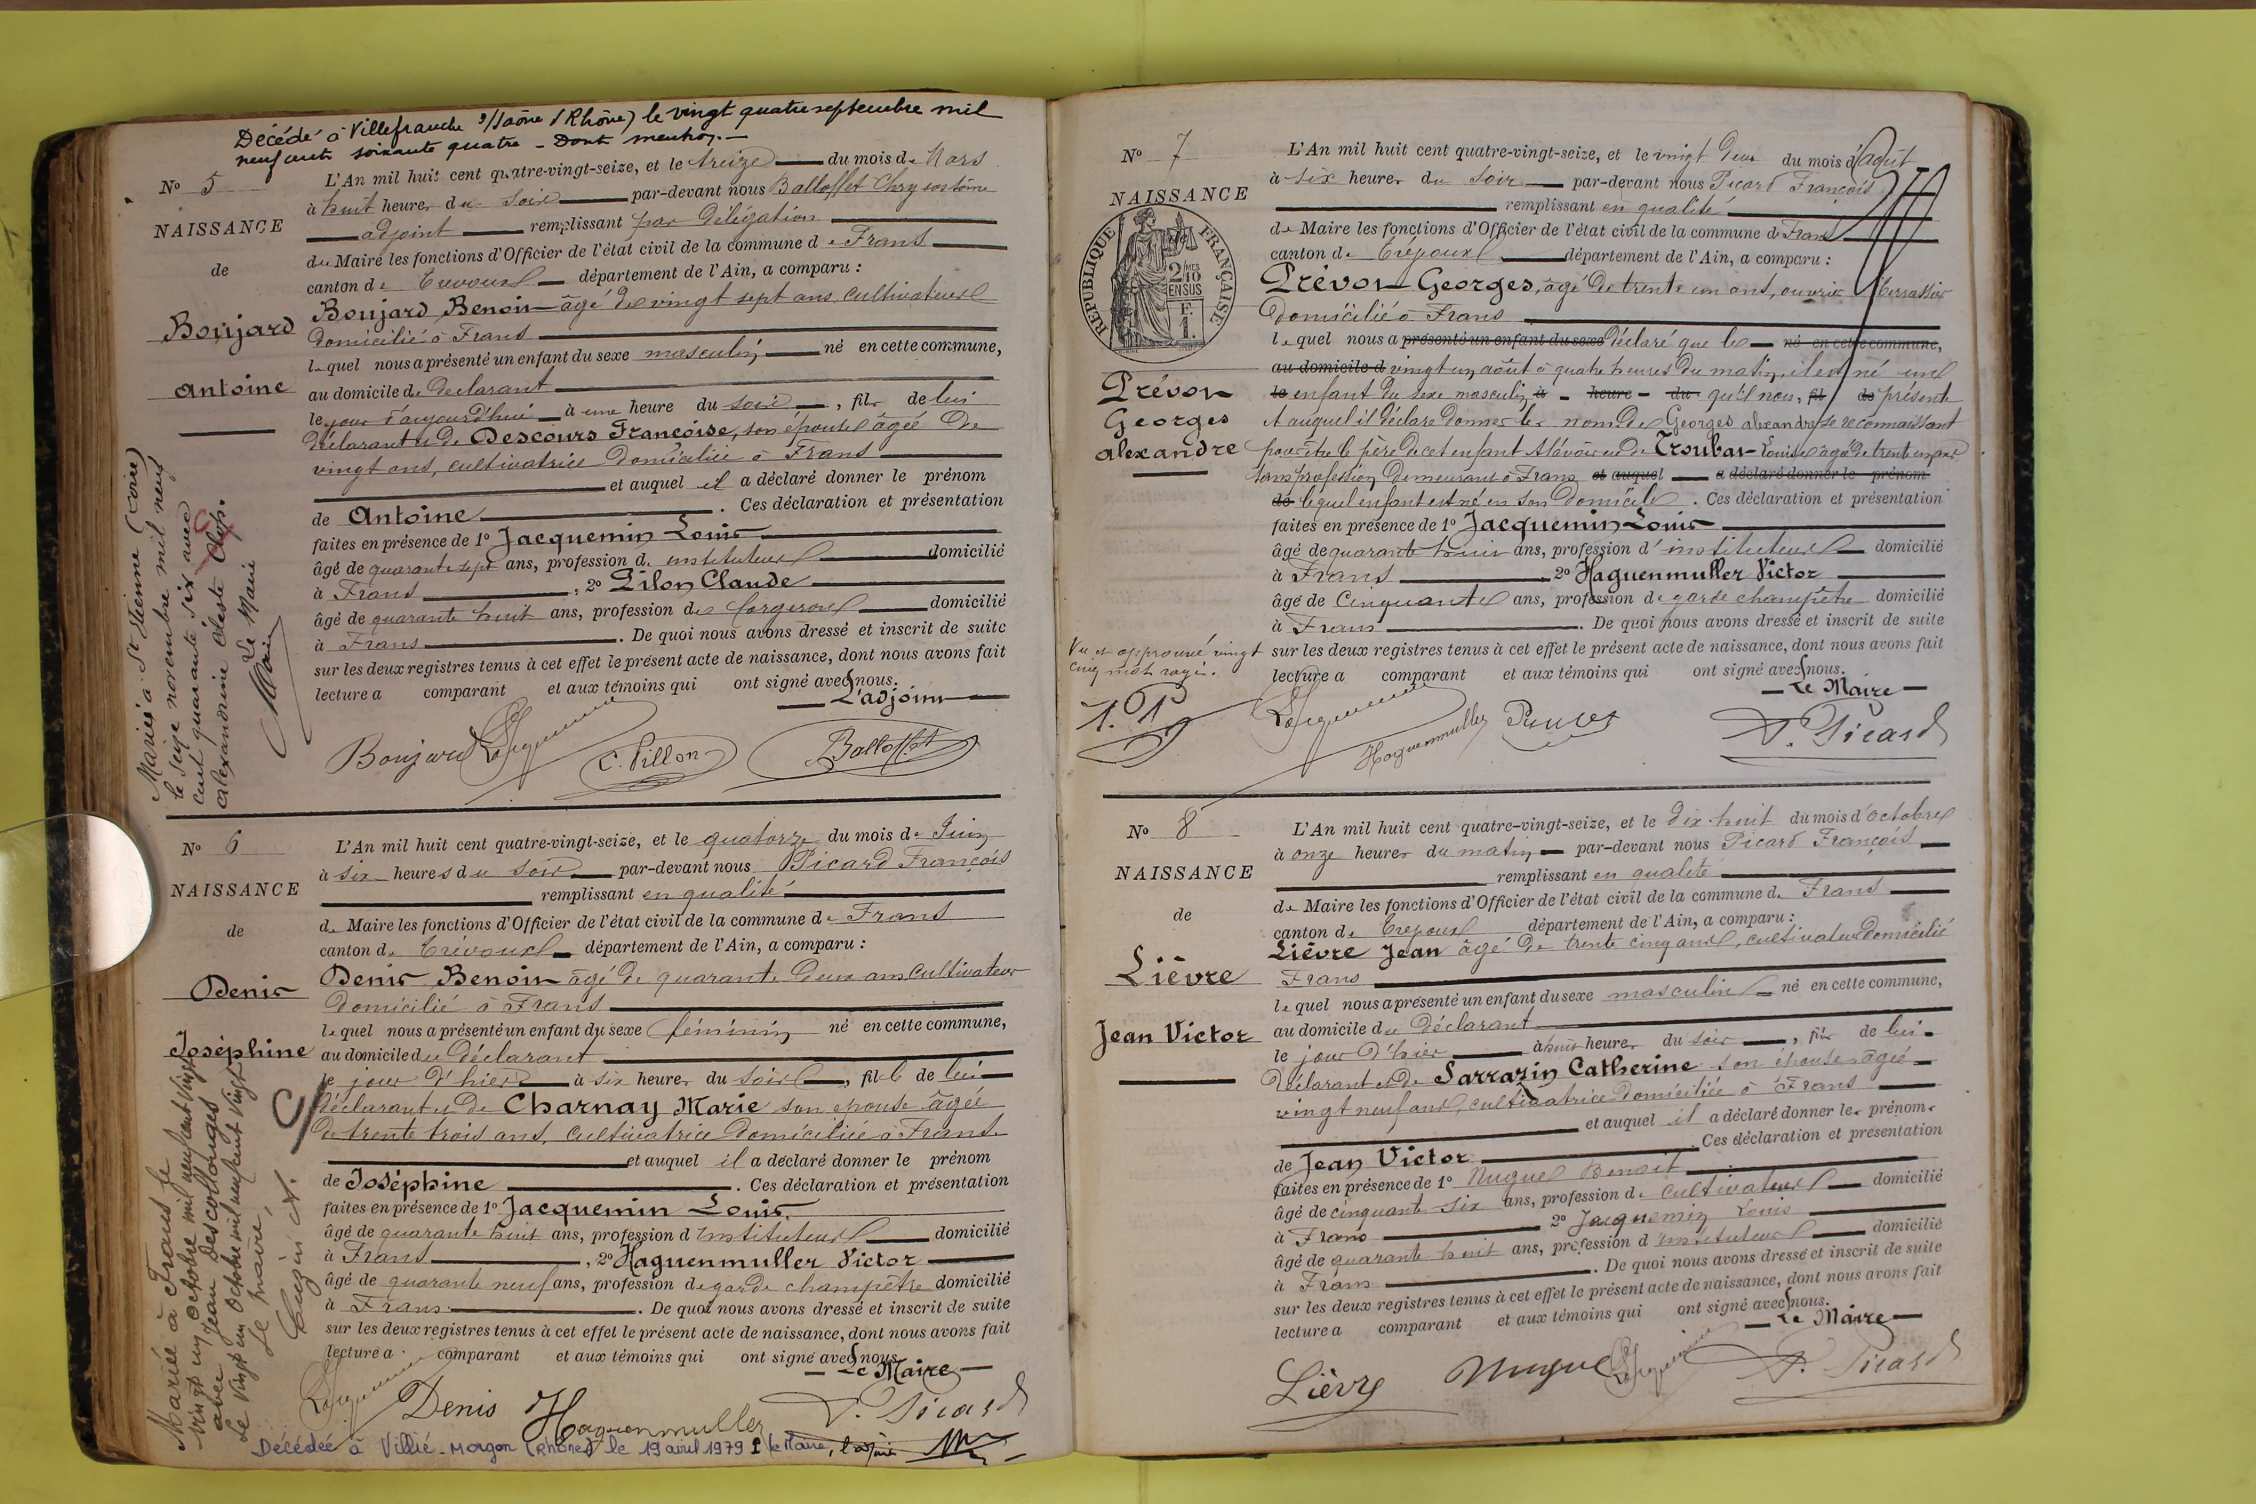 Décédé à Villefranche s/Saône (Rhône) le vingt quatre septembre mil
neuf cent soixante quatre - Dont mention. -
N° 5
NAISSANCE
de
Boujard
Antoine
L'An mil huit cent quatre-vingt-seize, et le treize du mois de Mars
à huit heures du soir par-devant nous Balloffet Chrysostôme
adjoint remplissant par délégation
du Maire les fonctions d'Officier de l'état civil de la commune de Frans
canton de Trévoux département de l'Ain, a comparu :
Boujard Benoit âgé de vingt sept ans, cultivateur
domicilié à Frans
lequel nous a présenté un enfant du sexe masculin né en cette commune,
au domicile du déclarant
le jour d'aujourd'hui à une heure du soir, fils de lui
déclarant et de Descours Françoise, son épouse âgée de
vingt ans, cultivatrice domiciliée à Frans
et auquel il a déclaré donner le prénom
de Antoine. Ces déclaration et présentation
faites en présence de 1° Jacquemin Louis
âgé de quarante sept ans, profession d. instituteur domicilié
à Frans, 2° Pilon Claude
âgé de quarante huit ans, profession de forgeron domicilié
à Frans. De quoi nous avons dressé et inscrit de suite
sur les deux registres tenus à cet effet le présent acte de naissance, dont nous avons fait
lecture a comparant et aux témoins qui ont signé avec nous.
L'adjoint
Boujard Jacquemin C. Pillon Balloffet
Marié à St Etienne (Loire)
le seize novembre mil neuf
cent quarante six avec
Alexandrine Céleste
Le Maire
N° 6
NAISSANCE
de
Denis
Joséphine
L'An mil huit cent quatre-vingt-seize, et le quatorze du mois de Juin
à six heures du soir par-devant nous Picard François
remplissant en qualité
de Maire les fonctions d'Officier de l'état civil de la commune de Frans
canton de Trévoux département de l'Ain, a comparu :
Denis Benoit âgé de quarante deux ans cultivateur
domicilié à Frans
lequel nous a présenté un enfant du sexe féminin né en cette commune,
au domicile du déclarant
le jour d'hier à six heures du soir, fille de lui
déclarant et de Charnay Marie son épouse âgée
de trente trois ans, cultivatrice domiciliée à Frans
et auquel il a déclaré donner le prénom
de Joséphine. Ces déclaration et présentation
faites en présence de 1° Jacquemin Louis
âgé de quarante huit ans, profession d'instituteur domicilié
à Frans, 2° Haguenmuller Victor
âgé de quarante neuf ans, profession de garde champêtre domicilié
à Frans. De quoi nous avons dressé et inscrit de suite
sur les deux registres tenus à cet effet le présent acte de naissance, dont nous avons fait
lecture a comparant et aux témoins qui ont signé avec nous.
Le Maire
Jacquemin Denis Haguenmuller F. Picard
Mariée à Frans le
vingt un octobre mil neuf cent vingt
avec Jean Descollonges
Le vingt un Octobre mil neuf cent vingt
Le maire,
Décédée à Villié-Morgon (Rhône) le 19 avril 1979 le Maire, l'adjoint
N° 7
NAISSANCE
RÉPUBLIQUE FRANÇAISE
2 MES
/10
EN SUS
F.
1.
Prévot
Georges
alexandre
L'An mil huit cent quatre-vingt-seize, et le vingt deux du mois d'août
à six heures du soir par-devant nous Picard François
remplissant en qualité
de Maire les fonctions d'Officier de l'état civil de la commune de Frans
canton de Trévoux département de l'Ain, a comparu :
Prévot Georges, âgé de trente un ans, ouvrier terrassier
domicilié à Frans
lequel nous a présenté un enfant du sexe déclaré que le né en cette commune,
au domicile d vingt un août à quatre heures du matin, il est né un
le enfant du sexe masculin à heure du qu'il nous, fil de présente
et auquel il déclare donner les noms de Georges alexandre se reconnaissant
pour être le père de cet enfant et l'avoir eu de Troubat Louise âgée de trente un ans
sans profession demeurant à Frans et auquel a déclaré donner le prénom
de lequel enfant est né en son domicile. Ces déclaration et présentation
faites en présence de 1° Jacquemin Louis
âgé de quarante huit ans, profession d'instituteur domicilié
à Frans 2° Haguenmuller Victor
âgé de Cinquante ans, profession de garde champêtre domicilié
à Frans. De quoi nous avons dressé et inscrit de suite
sur les deux registres tenus à cet effet le présent acte de naissance, dont nous avons fait
lecture a comparant et aux témoins qui ont signé avec nous.
Le Maire
Vu et approuvé vingt
cinq mots rayés.
Jacquemin Haguenmuller F. Picard
N° 8
NAISSANCE
de
Lièvre
Jean Victor
L'An mil huit cent quatre-vingt-seize, et le dix-huit du mois d'octobre
à onze heures du matin par-devant nous Picard François
remplissant en qualité
de Maire les fonctions d'Officier de l'état civil de la commune de Frans
canton de Trévoux département de l'Ain, a comparu :
Lièvre Jean âgé de trente cinq ans, cultivateur domicilié
Frans
lequel nous a présenté un enfant du sexe masculin né en cette commune,
au domicile du déclarant
le jour d'hier à huit heures du soir, fils de lui
déclarant et de Sarrazin Catherine son épouse âgée
vingt neuf ans, cultivatrice domiciliée à Frans
et auquel il a déclaré donner les prénoms
de Jean Victor. Ces déclaration et présentation
faites en présence de 1° Nugue Benoit
âgé de cinquante six ans, profession de cultivateur domicilié
à Frans 2° Jacquemin Louis
âgé de quarante huit ans, profession d'instituteur domicilié
à Frans. De quoi nous avons dressé et inscrit de suite
sur les deux registres tenus à cet effet le présent acte de naissance, dont nous avons fait
lecture a comparant et aux témoins qui ont signé avec nous.
Le Maire
Lièvre Nugue Jacquemin F. Picard